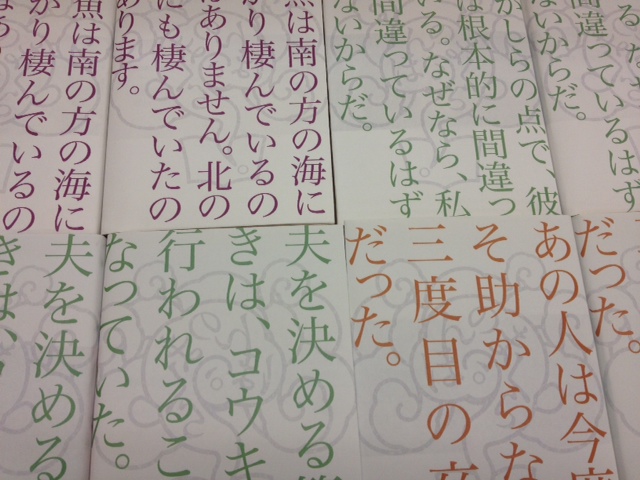 魚は南の方の海に
がり棲んでいるの
は南の方の海に
がり棲んでいるの
ありません。北の
にも棲んでいたの
あります。
かしらの点で、彼
は根本的に間違っ
いる。なぜなら、私
間違っているはず
ないからだ。
間違っているはず
ないからだ。
夫を決める
きは、
夫を決める
きは、コウキ
行われるこ
なっていた。
あの人は今度
そ助からな
三度目の
だった。
だった。